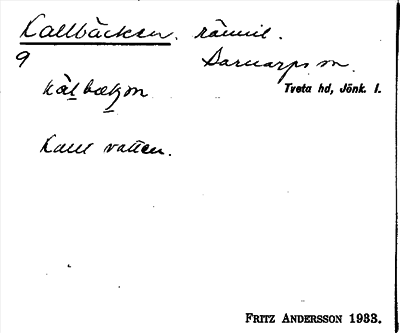 Kallbäcken. rännil.
9 Barnarps sn.
Tveta hd, Jönk. l.
Kallt vatten.
FRITZ ANDERSSON 1933.